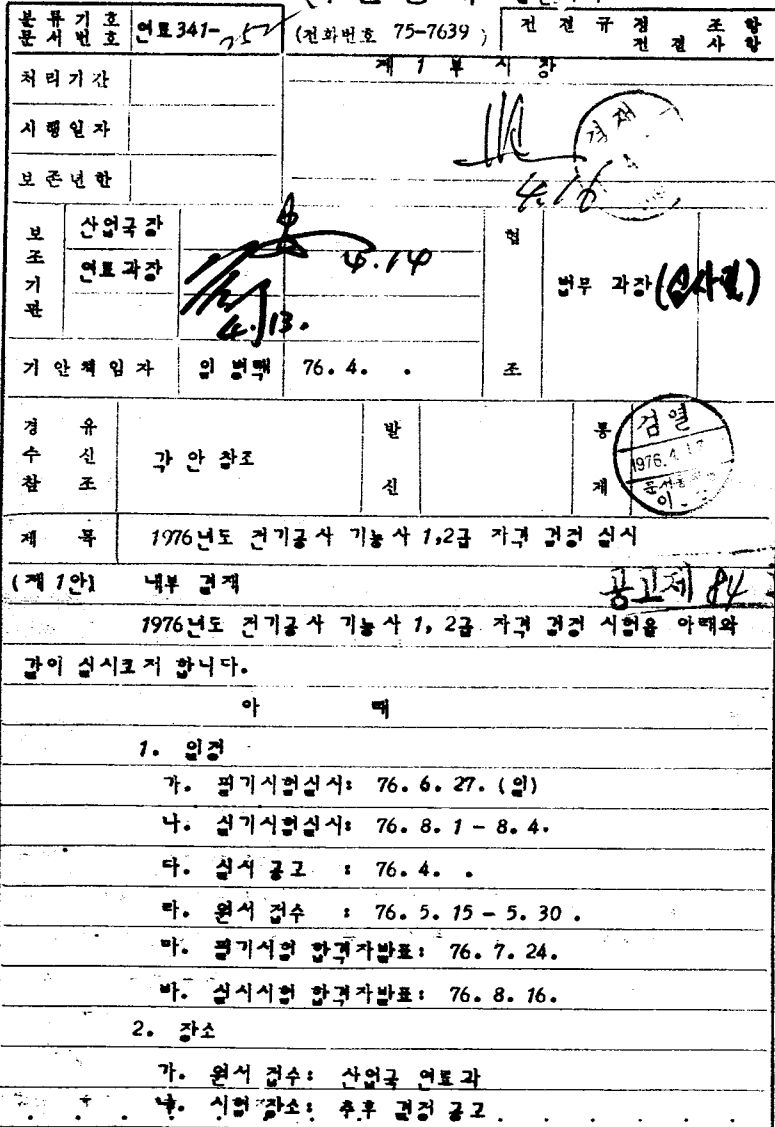 분류기호 문서번호 연료341-252 (전화번호 75-7639) 전결규정 조항 전결사항
처리기간 제1부시장
시행일자
보존년한 4.16
보조기관 산업국장 4.14 협조 법무 과장(심사필)
연료과장 4.13.
기안책임자 76.4. .
경유 수신 참조 각 안 참조 발신 통제 검열 1976.4.17
제 목 1976년도 전기공사 기능사 1,2급 자격 검정 실시
(제1안) 내부 결재 공고제 84
1976년도 전기공사 기능사 1, 2급 자격 검정 시험을 아래와
같이 실시코저 합니다.
아 래
1. 일정
가. 필기시험실시: 76. 6. 27. (일)
나. 실기시험실시: 76. 8. 1 - 8. 4.
다. 실시 공고 : 76. 4. .
라. 원서 접수 : 76. 5. 15 - 5. 30 .
마. 필기시험 합격자발표: 76. 7. 24.
바. 실시시험 합격자발표: 76. 8. 16.
2. 장소
가. 원서 접수: 산업국 연료과
나. 시험 장소: 추후 결정 공고